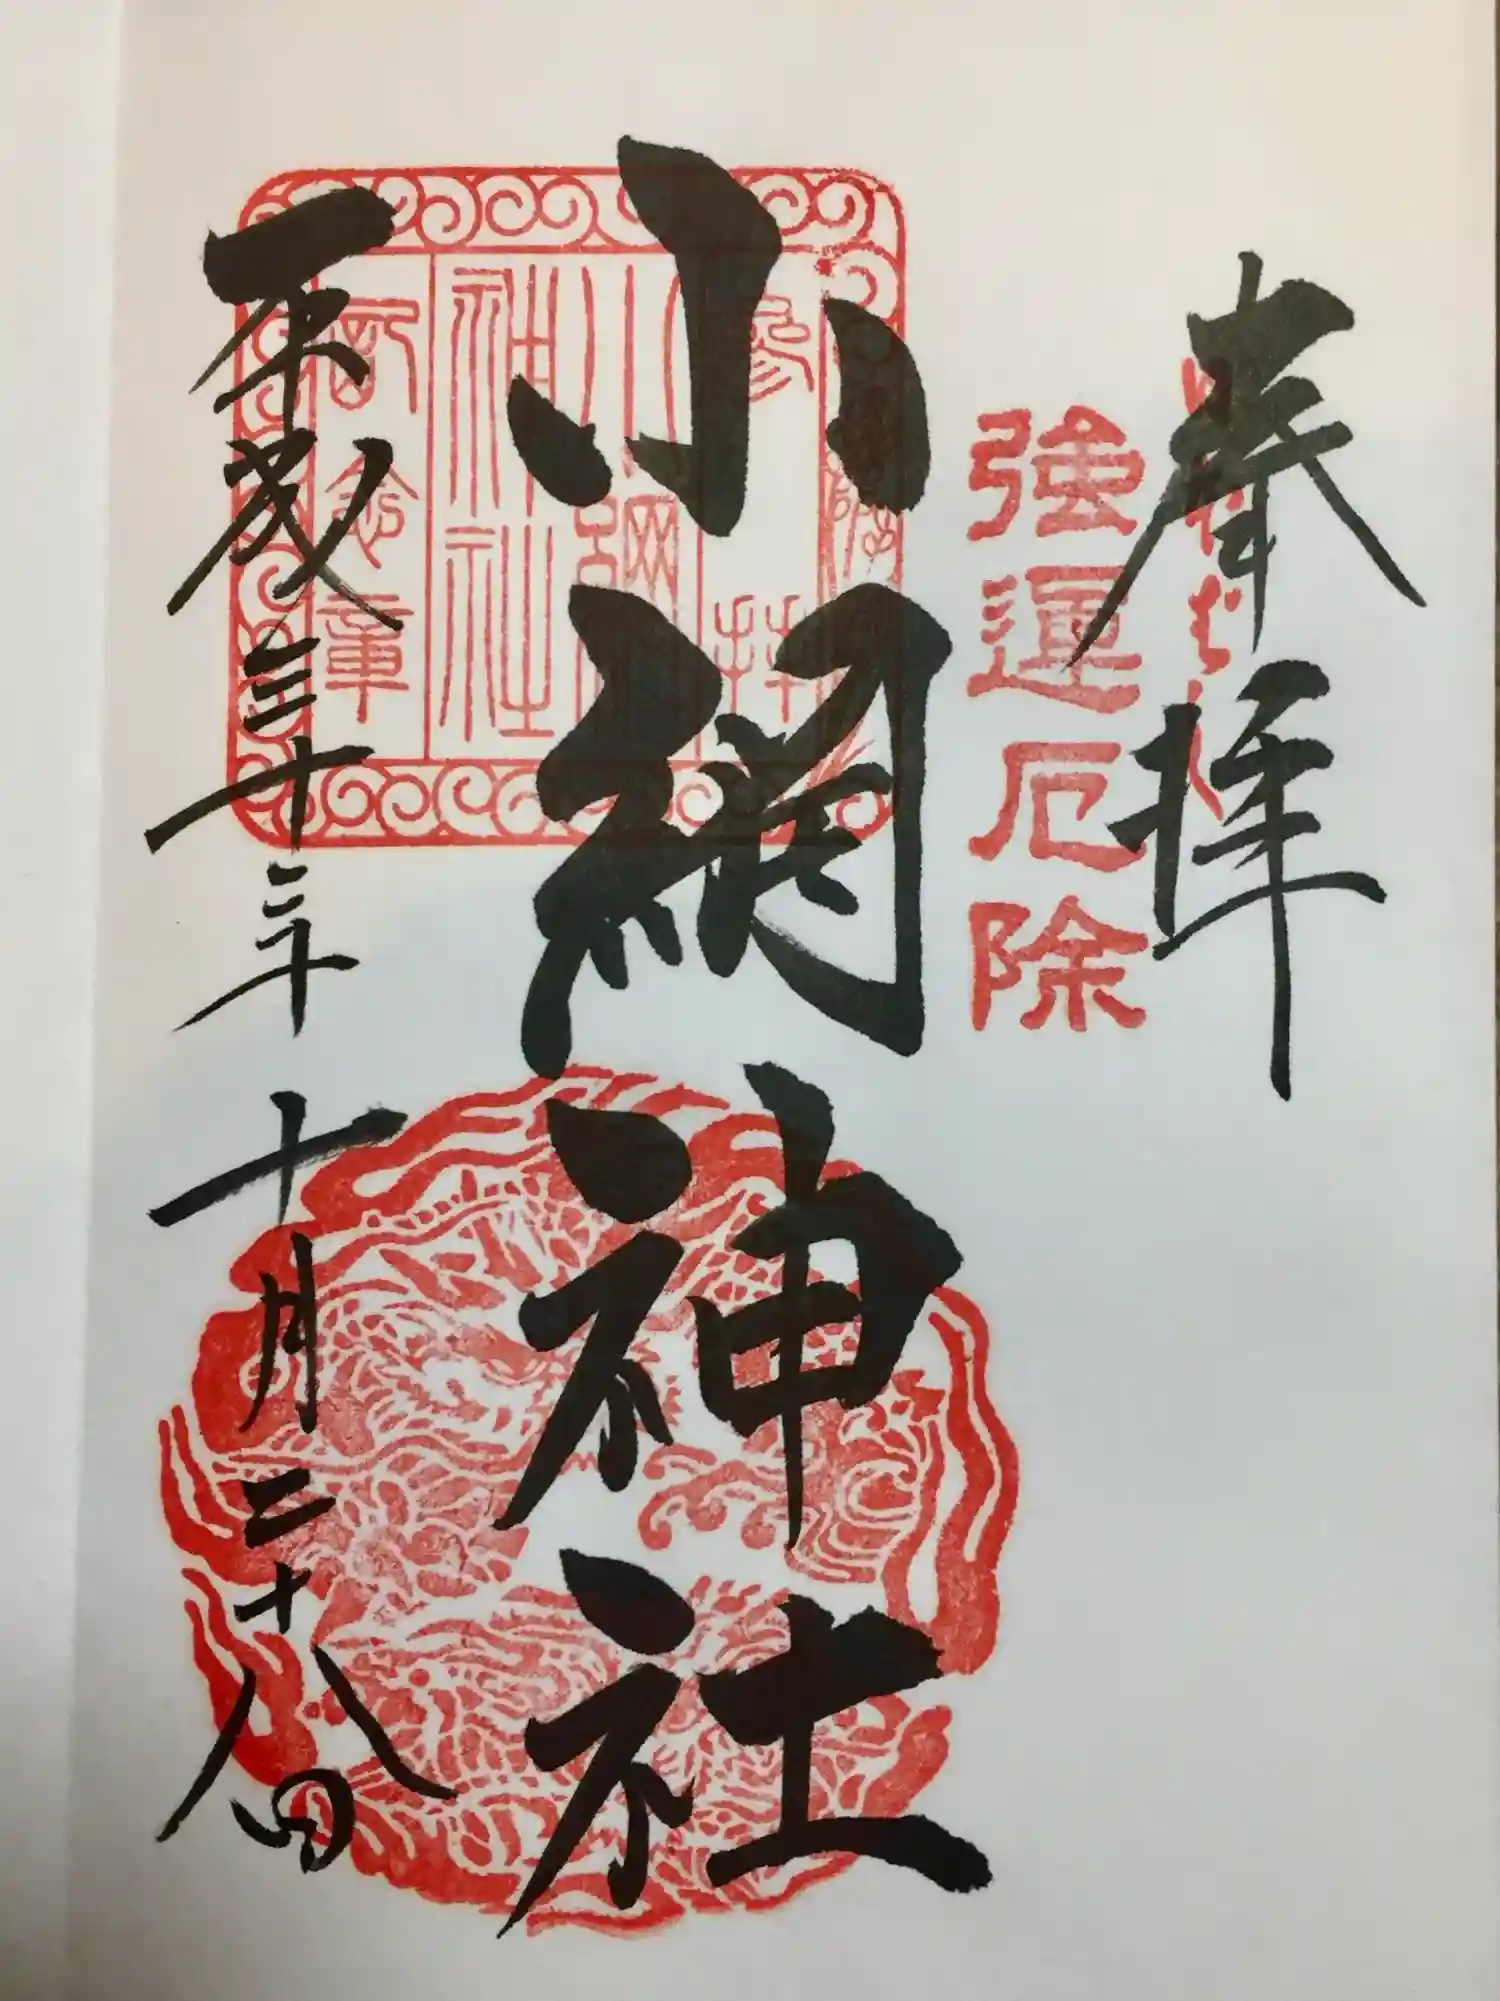 奉拝
強運厄除
小網神社
平成三十年十月二十八日
参拝
小網神社
記念章